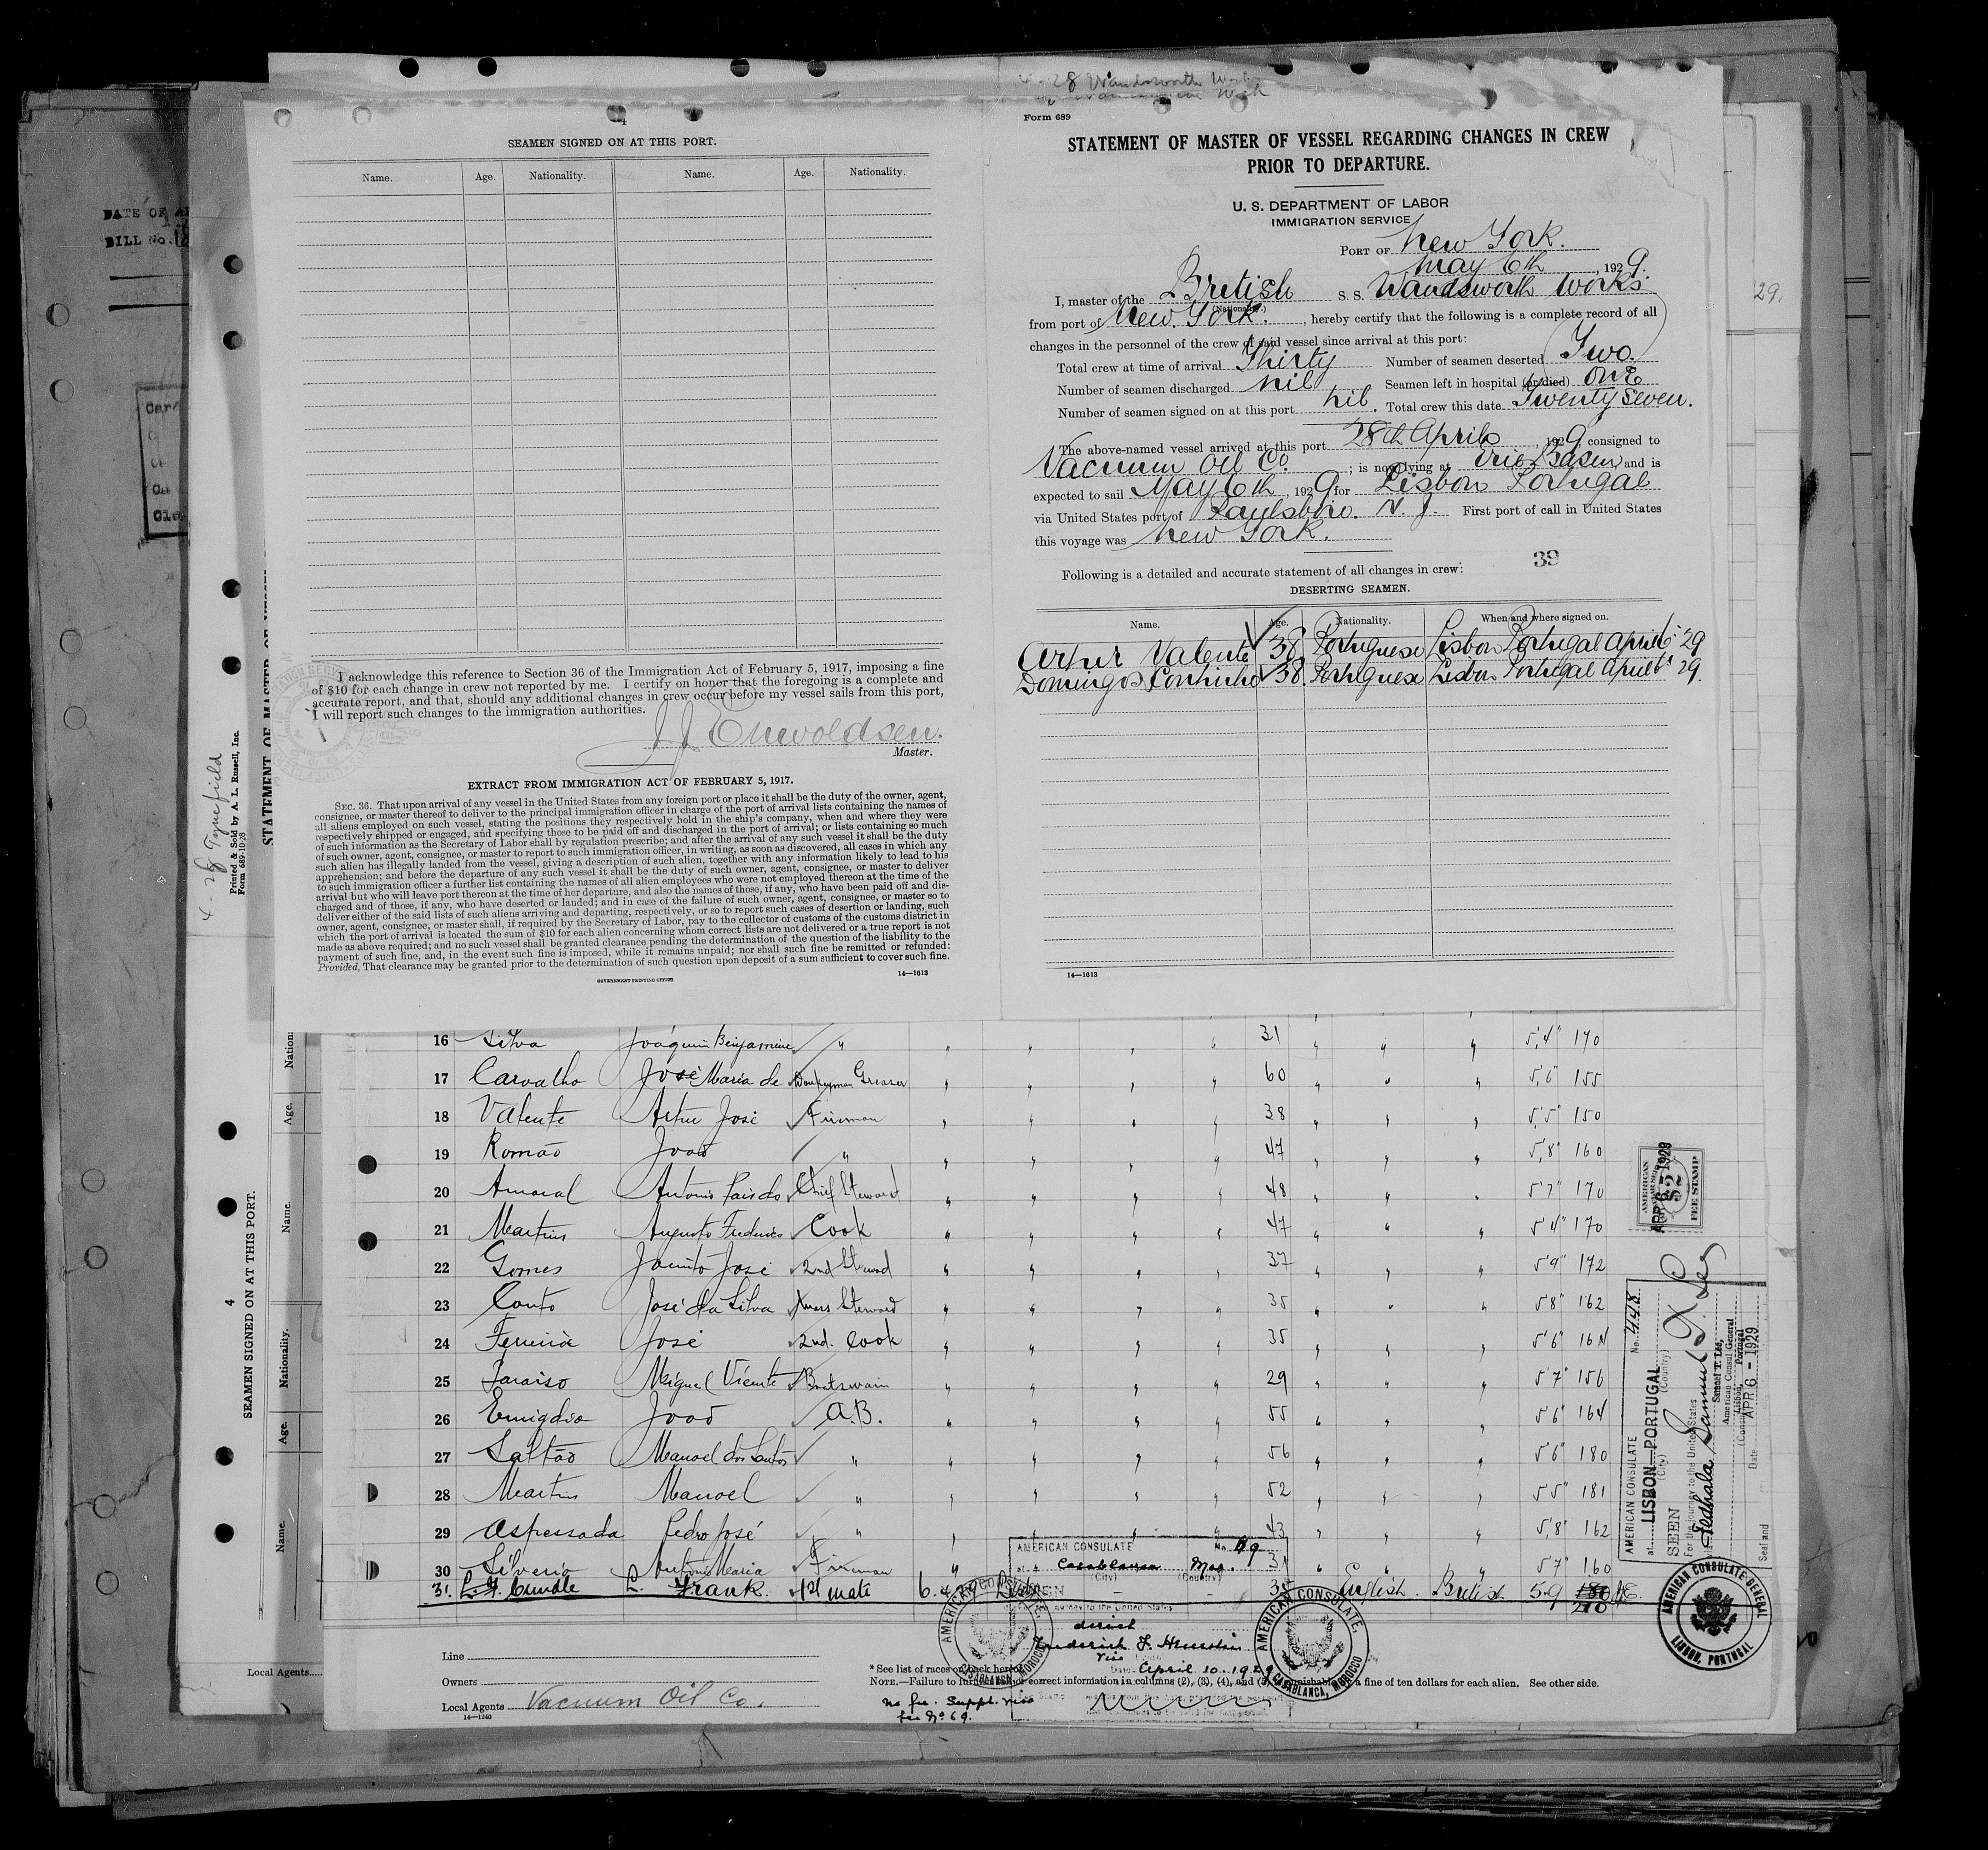 4-28 Wandsworth Works
SEAMEN SIGNED ON AT THIS PORT.
Name. Age. Nationality. Name. Age. Nationality.
I acknowledge this reference to Section 36 of the Immigration Act of February 5, 1917, imposing a fine
of $10 for each change in crew not reported by me. I certify on honor that the foregoing is a complete and
accurate report, and that, should any additional changes in crew occur before my vessel sails from this port,
I will report such changes to the immigration authorities.
J J Enevoldsen.
Master.
EXTRACT FROM IMMIGRATION ACT OF FEBRUARY 5, 1917.
SEC. 36. That upon arrival of any vessel in the United States from any foreign port or place it shall be the duty of the owner, agent,
consignee, or master thereof to deliver to the principal immigration officer in charge of the port of arrival lists containing the names of
all aliens employed on such vessel, stating the positions they respectively hold in the ship's company, when and where they were
respectively shipped or engaged, and specifying those to be paid off and discharged in the port of arrival; or lists containing so much
of such information as the Secretary of Labor shall by regulation prescribe; and after the arrival of any such vessel it shall be the duty
of such owner, agent, consignee, or master to report to such immigration officer, in writing, as soon as discovered, all cases in which any
such alien has illegally landed from the vessel, giving a description of such alien, together with any information likely to lead to his
apprehension; and before the departure of any such vessel it shall be the duty of such owner, agent, consignee, or master to deliver
to such immigration officer a further list containing the names of all alien employees who were not employed thereon at the time of the
arrival but who will leave port thereon at the time of her departure, and also the names of those, if any, who have been paid off and dis-
charged and of those, if any, who have deserted or landed; and in case of the failure of such owner, agent, consignee, or master so to
deliver either of the said lists of such aliens arriving and departing, respectively, or so to report such cases of desertion or landing, such
owner, agent, consignee, or master shall, if required by the Secretary of Labor, pay to the collector of customs of the customs district in
which the port of arrival is located the sum of $10 for each alien concerning whom correct lists are not delivered or a true report is not
made as above required; and no such vessel shall be granted clearance pending the determination of the question of the liability to the
payment of such fine, and, in the event such fine is imposed, while it remains unpaid; nor shall such fine be remitted or refunded:
Provided, That clearance may be granted prior to the determination of such question upon deposit of a sum sufficient to cover such fine.
GOVERNMENT PRINTING OFFICE
14—1613
Form 689
STATEMENT OF MASTER OF VESSEL REGARDING CHANGES IN CREW
PRIOR TO DEPARTURE.
U. S. DEPARTMENT OF LABOR
IMMIGRATION SERVICE
PORT OF New York.
May 6th, 1929.
I, master of the British S. S. Wandsworth Works
(Nationality.)
from port of New York., hereby certify that the following is a complete record of all
changes in the personnel of the crew of said vessel since arrival at this port:
Total crew at time of arrival Thirty Number of seamen deserted Two.
Number of seamen discharged nil Seamen left in hospital (or died) ONE
Number of seamen signed on at this port nil. Total crew this date Twenty Seven.
The above-named vessel arrived at this port 28th April, 1929, consigned to
Vacuum Oil Co.; is now lying at Erie Basin and is
expected to sail May 6th, 1929 for Lisbon Portugal
via United States port of Paulsboro. N. J. First port of call in United States
this voyage was New York.
39
Following is a detailed and accurate statement of all changes in crew:
DESERTING SEAMEN.
Name. Age. Nationality. When and where signed on.
Artur Valente 38 Portuguese Lisbon Portugal April 6 '29
Domingos Continho 38. Portuguese Lisbon Portugal April 6 29.
14—1613
DATE OF
BILL No.
29.
4-28 Tynefield
Printed & Sold by A. L. Russell, Inc.
Form 689-10-28
4
SEAMEN SIGNED ON AT THIS PORT.
Name. Age. Nationality. Name. Age.
16 Silva Joaquim Benjamine " 31 5'4" 170
17 Carvalho José Maria de Donkeyman Greaser 60 5'6" 155
18 Valente Artur José Fireman 38 5'5" 150
19 Romão João " 47 5'8" 160
20 Amaral Antonio Pais do Chief Steward 48 5'7" 170
21 Martins Augusto Frederico Cook 47 5'4" 170
22 Gomes Jacinto José 2nd Steward 37 5'9" 172
23 Couto José da Silva Steward 35 5'8" 162
24 Ferreira José 2nd. Cook 35 5'6"
25 Paraiso Miguel Vicente Boatswain 29 5'7" 156
26 Emigdio João A.B. 55 5'6" 164
27 Saltão Manoel dos Santos " 56 5'6" 180
28 Martins Manoel " 52 5'5" 181
29 Aspessada Pedro José " 43 5'8" 162
30 Silverio Antonio Maria Fireman 31 5'7" 160
31. Cundle L. Frank. 1st mate 35 English. British 5-9 180 210
Line
Owners
Local Agents Vacuum Oil Co.
14—1240
Local Agents
* See list of races on back hereof.
NOTE.—Failure to furnish full or correct information in columns (2), (3), (4), and (5) is punishable by a fine of ten dollars for each alien. See other side.
no fee. Suppl. visa
fee No 69.
AMERICAN CONSULATE No. 69
at Casablanca Mor.
(City) (Country)
April 10-1929
AMERICAN CONSULATE. CASABLANCA, MOROCCO
AMERICAN CONSULATE. CASABLANCA, MOROCCO
AMERICAN FEE STAMP
$2
APR 6-1929
AMERICAN CONSULATE No. 448
at LISBON—PORTUGAL
(City) (Country)
SEEN
For the journey to the United States
Samuel T. Lee
Samuel T. Lee,
American Consul General
Lisbon, Portugal
Date APR 6 - 1929
Seal and
AMERICAN CONSULATE GENERAL LISBON, PORTUGAL